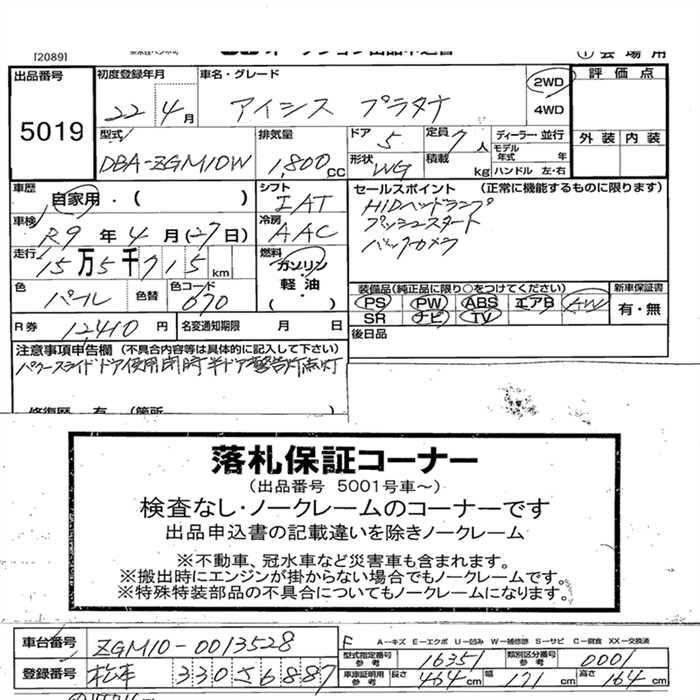 [2089]
① 会場用
出品番号 初度登録年月 車名・グレード 2WD 評価点
5019 22年4月 アイシス プラタナ 4WD
型式 排気量 ドア 5 定員 7人 ディーラー・並行 外装 内装
DBA-ZGM10W 1,800cc 形状 WG 積載 kg モデル年式 年 ハンドル 左・右
車歴 自家用・( ) シフト IAT セールスポイント (正常に機能するものに限ります)
車検 R9年4月(27日) 冷房 AAC HIDヘッドランプ
走行 15万5千715km 燃料 ガソリン・軽油・( ) プッシュスタート
色 パール 色替 色コード 070 バックカメラ
装備品(純正品に限り○をつけてください) 新車保証書
PS PW ABS エアB AW 有・無
SR ナビ TV
R券 12,410円 名変通知期限 月 日 後日品
注意事項申告欄 (不具合内容等は具体的に記入して下さい)
パワースライドドア使用閉時半ドア警告灯点灯
修復歴 有 (箇所
落札保証コーナー
(出品番号 5001号車～)
検査なし・ノークレームのコーナーです
出品申込書の記載違いを除きノークレーム
※不動車、冠水車など災害車も含まれます。
※搬出時にエンジンが掛からない場合でもノークレームです。
※特殊特装部品の不具合についてもノークレームになります。
車台番号 ZGM10-0013528 F A-キズ E-エクボ U-凹み W-補修跡 S-サビ C-腐食 XX-交換済
型式指定番号 参考 16351 類別区分番号 参考 0001
登録番号 松本 330 す 6887 車庫証明用 参考 長さ 464cm 幅 171cm 高さ 164cm